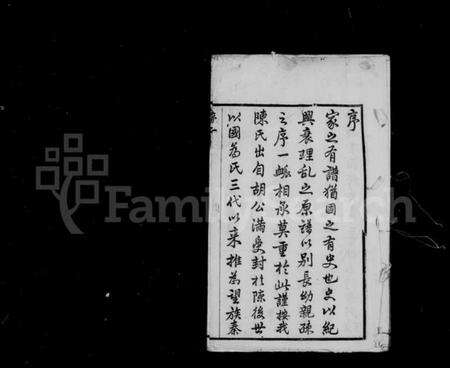 序
家之有譜猶國之有史也史以紀
興衰理乱之原譜以别長幼親疎
之序一脉相承莫重於此謹按我
陳氏出自胡公滿受封於陳後世
以國為氏三代以来推為望族秦
FamilySearch